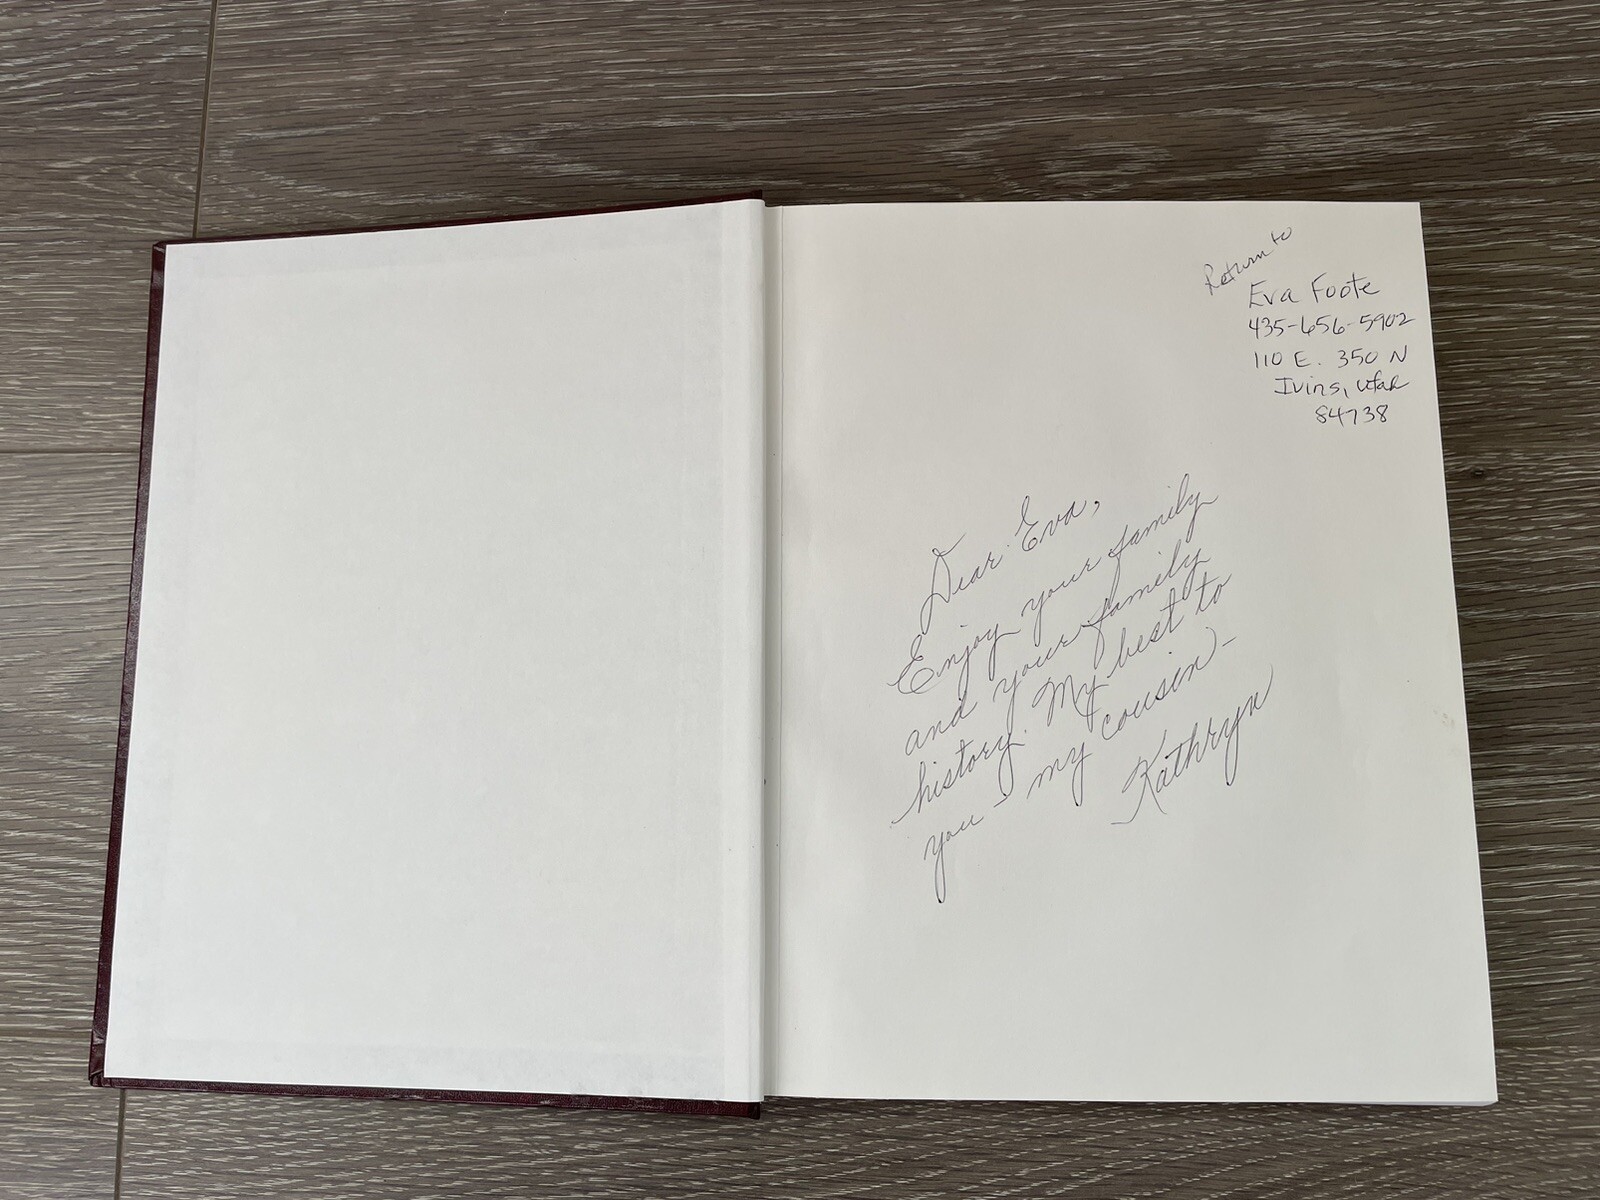 Return to
Eva Foote
435-656-5902
110 E. 350 N
Ivins, Utah
84738
Dear Eva,
Enjoy your family
and your family
history. My best to
you - my cousin -
Kathryn